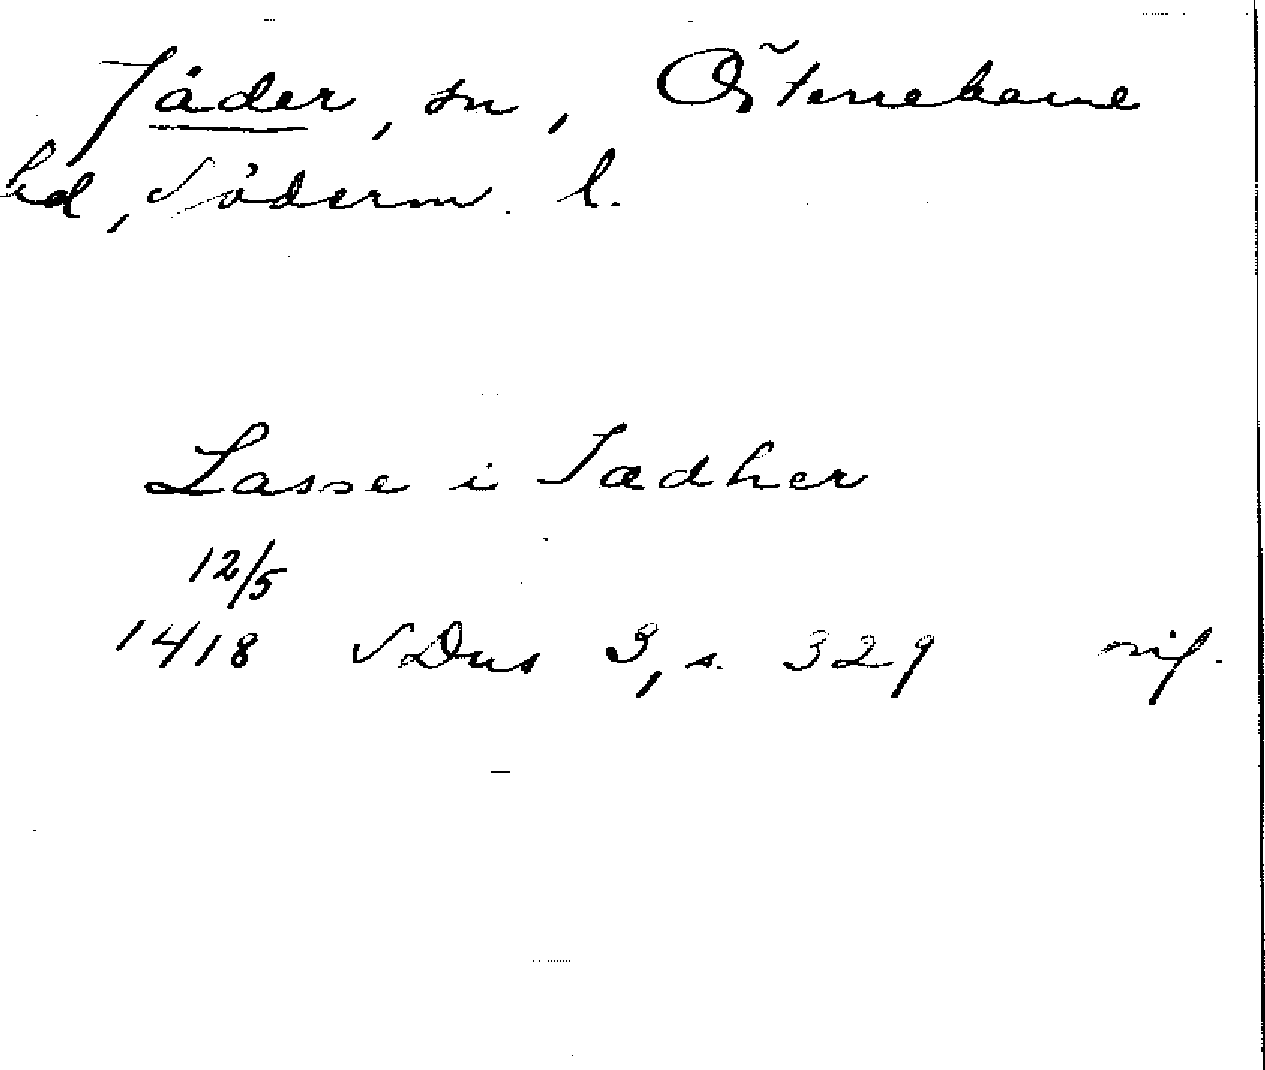 Jäder, sn, Österrekarne
hd, Söderm. l.
Lasse i Jædher
12/5
1418 SDns 3, s. 329 sig.